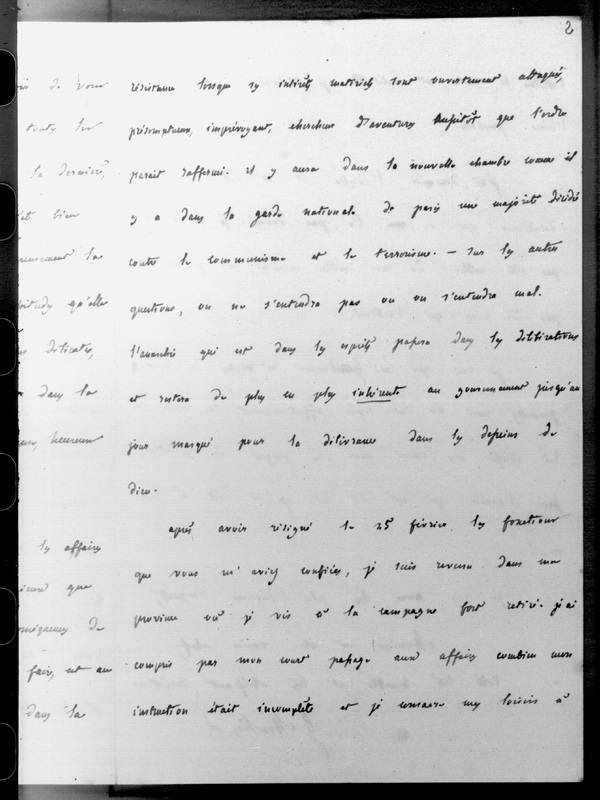 2
résistance lorsque ses intérêts matériels sont ouvertement attaqués,
présomptueux, imprévoyant, chercheur d'aventures aussitôt que l'ordre
parait raffermi. il y aura dans la nouvelle chambre comme il
y a dans la garde nationale de paris une majorité décidée
contre le communisme et le terrorisme. — sur les autres
questions, on ne s'entendra pas ou on s'entendra mal.
l'anarchie qui est dans les esprits passera dans les délibérations
et restera de plus en plus inhérente au gouvernement jusqu'au
jour marqué pour la délivrance dans les desseins de
dieu.
après avoir résigné le 25 février les fonctions
que vous m'aviez confiées, je suis revenu dans ma
province où je vis à la campagne fort retiré. j'ai
compris par mon court passage aux affaires combien mon
instruction était incomplète et je consacre mes loisirs à
de votre
toutes les
la dernière,
bien
la
qu'elle
délicates,
dans la
heureux
les affaires
que
de
faire, et au
dans la